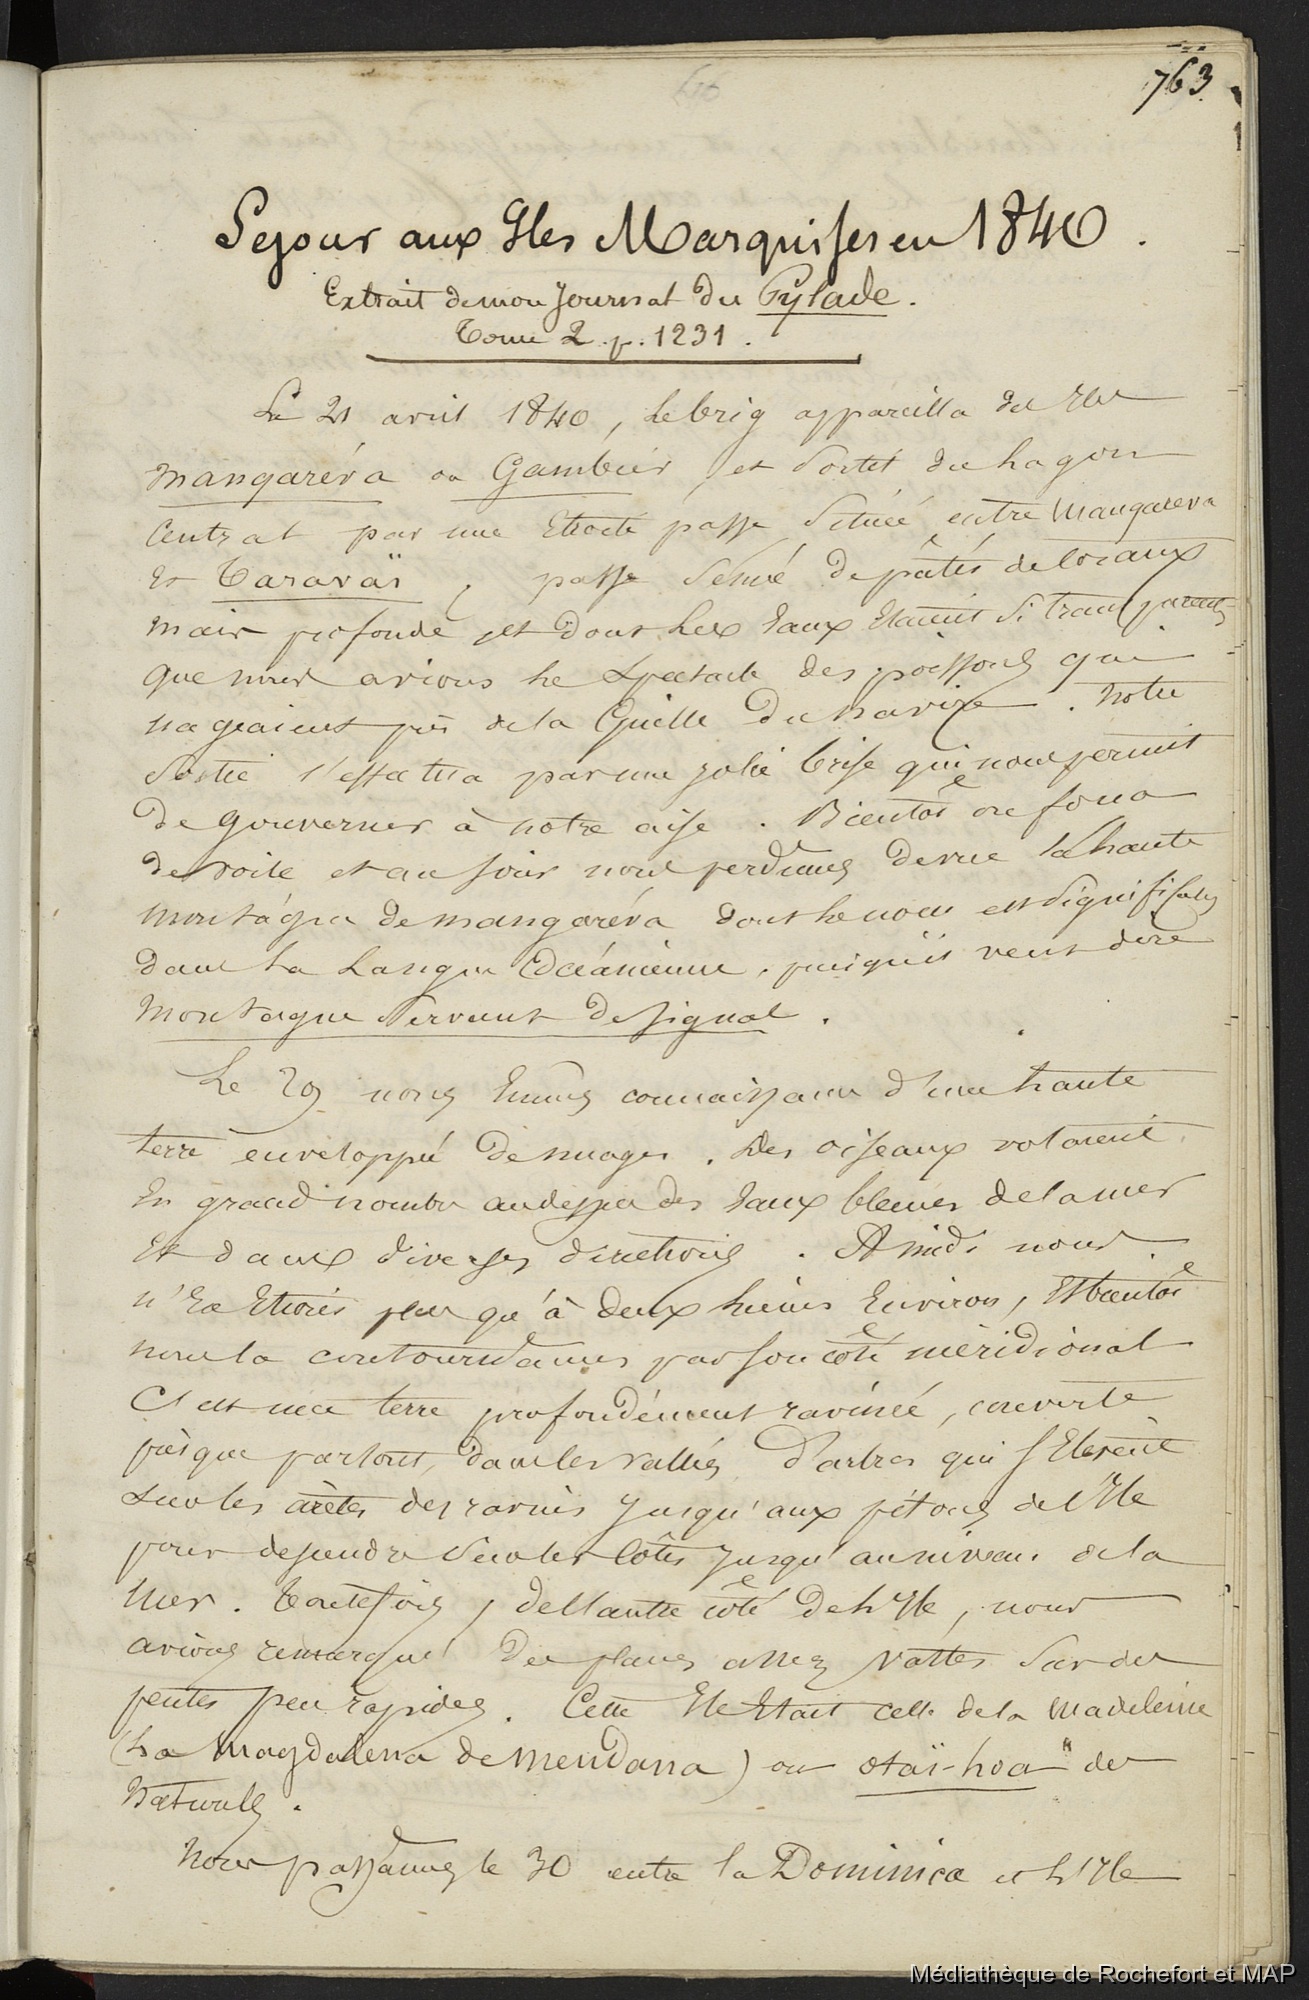 763
Sejour aux Iles Marquises en 1840.
Extrait de mon Journal du Pylade.
Tome 2. p. 1231.
Le 21 avril 1840, le brig appareilla des Iles
Mangaréva ou Gambier, et sortit du Lagon
Central par une Etroite passe située entre Mangareva
Et Taravaï, passe semée de pâtés de Coraux
mais profonde et dont les Eaux Etaient si transparentes
que nous avions le spectacle des poissons qui
nageaient près de la Quille du navire. Notre
sortie s'effectua par une jolie brise qui nous permit
de gouverner à notre aise. Bientôt on força
de voile et au soir nous perdîmes de vue la haute
montagne de Mangaréva dont le nom est significatif
dans la Langue Océanienne, puisqu'il veut dire
Montagne servant de signal.
Le 29 nous Eumes connaissance d'une haute
terre enveloppé de nuages. Des oiseaux volaient
En grand nombre au dessus des Eaux bleues de la mer
Et dans diverses directions. A midi nous
n'En Etions plus qu'à deux lieues Environ, Et bientôt
nous la contournâmes par son côté méridional
C'est une terre profondément ravinée, couverte
presque partout, dans les vallées d'arbres qui s'Elevent
sur les arêtes des ravins jusqu'aux pitons de l'Ile
pour descendre sur les Côtes jusqu'au niveau de la
mer. Toutefois, de l'autre côté de l'Ile, nous
avions remarqué des planes assez vastes sur des
pentes peu rapides. Cette Ile Etait celle de la Madeleine
(La Magdalena de Mendana) ou otaï-hoa des
Naturels.
Nous passâmes le 30 entre la Dominica et l'Ile
Médiathèque de Rochefort et MAP